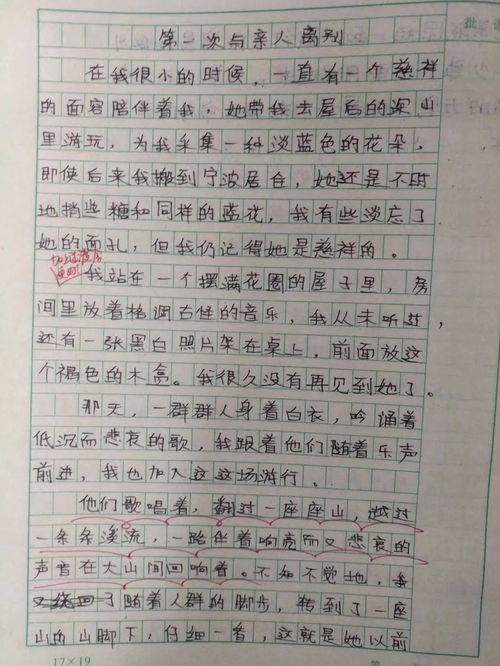 第一次与亲人离别
在我很小的时候，一直有一个慈祥
的面容陪伴着我，她带我去屋后的深山
里游玩，为我采集一种淡蓝色的花朵，
即使后来我搬到宁波居住，她还是不时
地捎些糖和同样的蓝花，我有些淡忘了
她的面孔，但我仍记得她是慈祥的。
我站在一个摆满花圈的屋子里，房
间里放着格调古怪的音乐，我从未听过，
还有一张黑白照片架在桌上，前面放这
个褐色的木盒。我很久没有再见到她了。
那天，一群群人身着白衣，吟诵着
低沉而悲哀的歌，我跟着他们随着乐声
前进，我也加入这这场游行。
他们歌唱着，翻过一座座山，越过
一条条溪流，一路伴着响亮而又悲哀的
声音在大山间回响着。不知不觉地，我
了随着人群的脚步，转到了一座
山的山脚下，仔细一看，这就是她以前
17×19